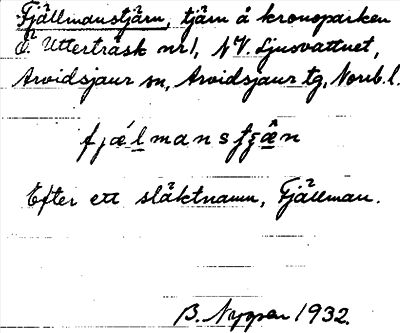 Fjällmanstjärn, tjärn å kronoparken
Ö. Utterträsk nr 1, NV. Ljusvattnet,
Arvidsjaur sn, Arvidsjaur tg, Norrb. l.
fjälmanstjän
Efter ett släktnamn, Fjällman.
B. Nygren 1932.